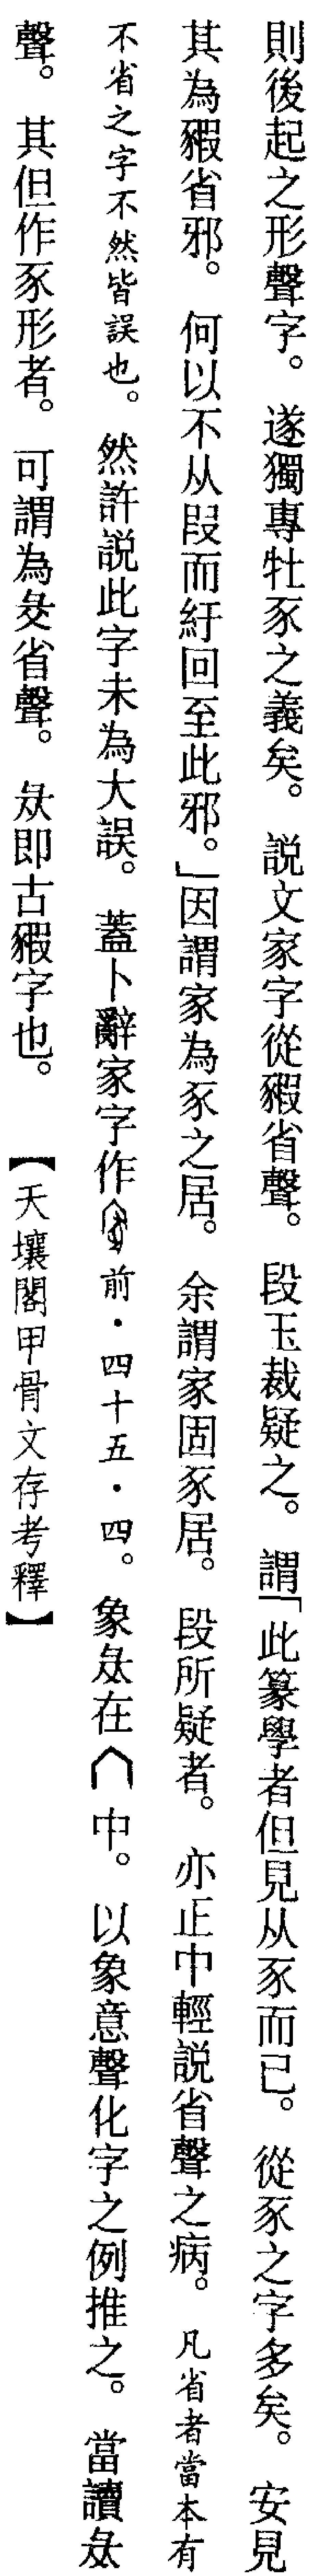 則後起之形聲字。遂獨專牡豕之義矣。説文家字從豭省聲。段玉裁疑之。謂「此篆學者但見从豕而已。從豕之字多矣。安見
其為豭省邪。何以不从叚而紆回至此邪。」因謂家為豕之居。余謂家固豕居。段所疑者。亦正中輕説省聲之病。凡省者當本有
不省之字不然皆誤也。然許説此字未為大誤。蓋卜辭家字作前·四十五·四。象㒸在宀中。以象意聲化字之例推之。當讀㒸
聲。其但作豕形者。可謂為㒸省聲。㒸即古豭字也。【天壤閣甲骨文存考釋】